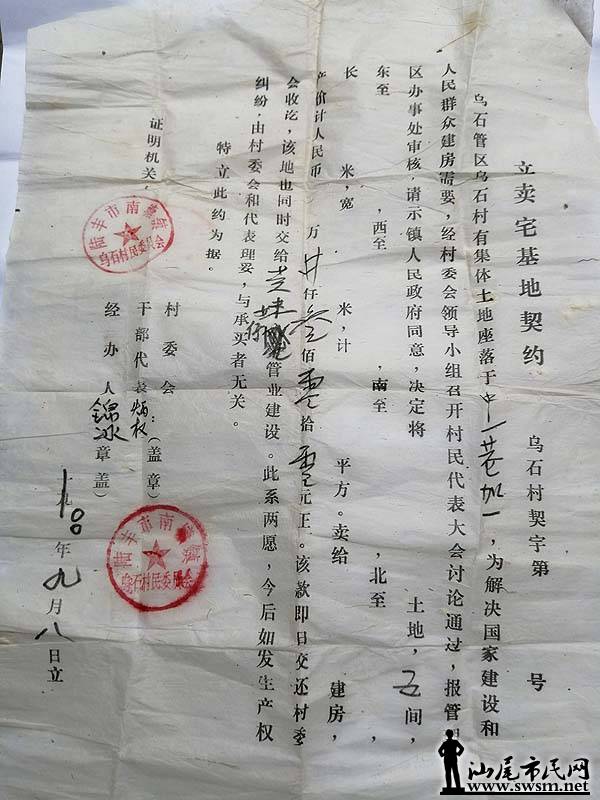 立卖宅基地契约
乌石村契字第 号
乌石管区乌石村有集体土地座落于中一巷加一，为解决国家建设和
人民群众建房需要，经村委会领导小组召开村民代表大会讨论通过，报管
区办事处审核，请示镇人民政府同意，决定将 土地，五间，
东至 ，西至 ，南至 ，北至 ，
长 米，宽 米，计 平方。卖给 建房，
产价计人民币 万 仟 佰 零 拾 零 元正。该款即日交还村委
会收讫，该地也同时交给 管业建设。此系两愿，今后如发生产权
纠纷，由村委会和代表理妥，与承买者无关。
特立此约为据。
证明机关：
村委会
干部代表：炳权（盖章）
经办人：锦冰（盖章）
年九月八日立
陆丰市南 镇
乌石村民委员会
陆丰市南 镇
乌石村民委员会
汕尾市民网
www.swsm.net